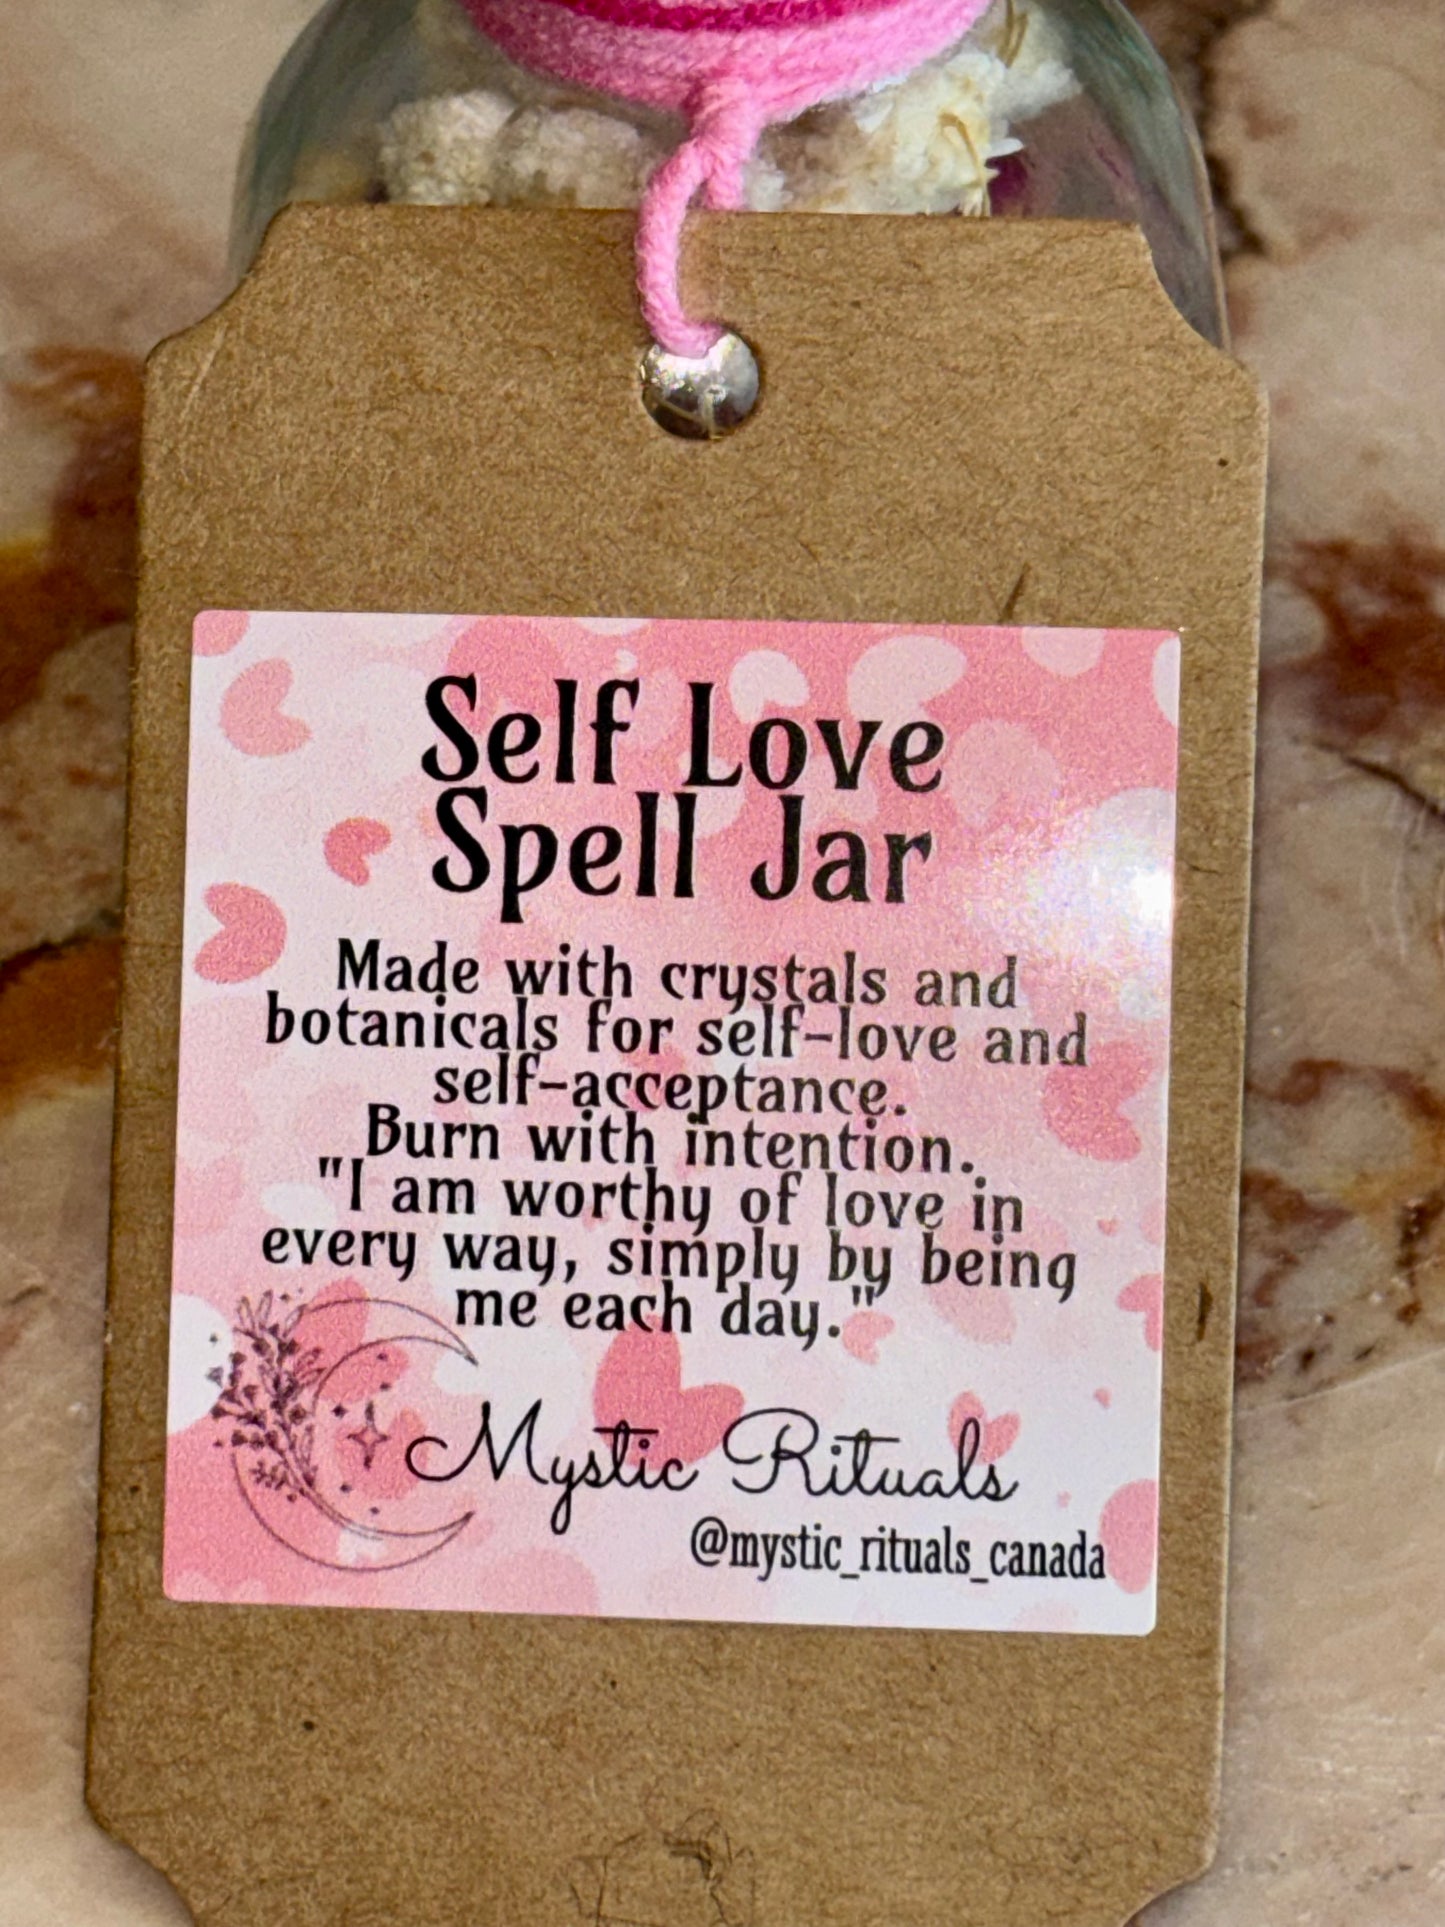 Self Love
Spell Jar
Made with crystals and
botanicals for self-love and
self-acceptance.
Burn with intention.
"I am worthy of love in
every way, simply by being
me each day."
Mystic Rituals
@mystic_rituals_canada